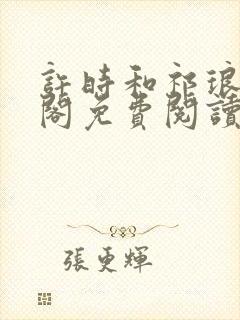 許時和祁琅
閣免費閱讀
張更輝